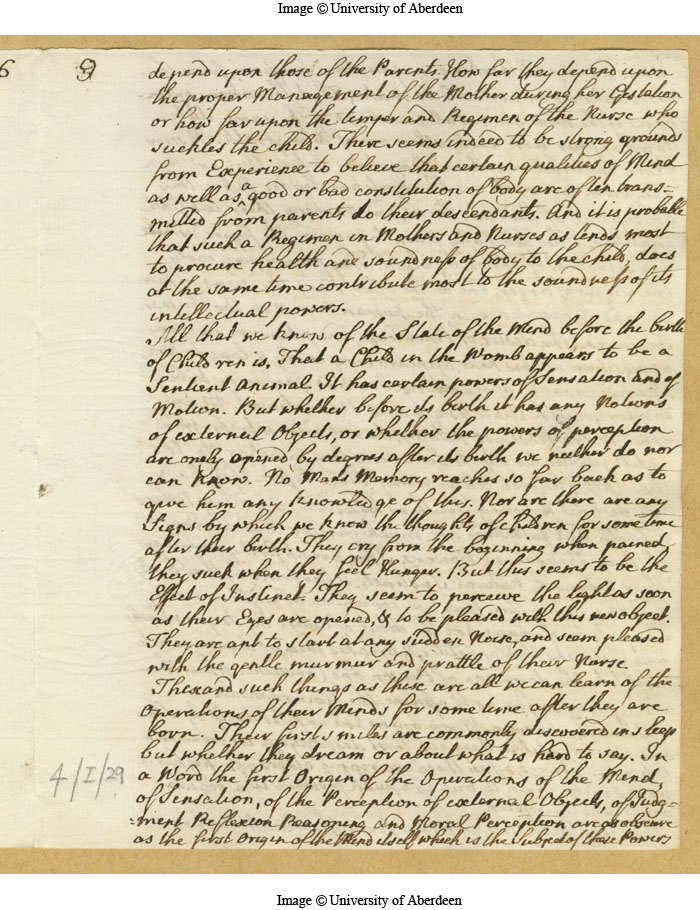 Image © University of Aberdeen
6 9
depend upon those of the Parents. How far they depend upon
the proper Management of the Mother during her Gestation
or how far upon the temper and Regimen of the Nurse who
suckles the child. There seems indeed to be strong grounds
from Experience to believe that certain qualities of Mind
as well as a good or bad constitution of body are often trans=
mitted from parents to their descendants. And it is probable
that such a Regimen in Mothers and Nurses as tends most
to procure health and soundness of body to the child, does
at the same time contribute most to the soundness of its
intellectual powers.
All that we know of the State of the Mind before the birth
of Children is, That a Child in the Womb appears to be a
Sentient Animal. It has certain powers of Sensation and of
Motion. But whether before its birth it has any Notions
of external Objects, or whether the powers of perception
are onely opened by degrees after its birth we neither do nor
can know. No Mans Memory reaches so far back as to
give him any knowledge of this. Nor are there are any
Signs by which we know the thoughts of Children for some time
after their birth. They cry from the beginning when pained
they suck when they feel Hunger. But this seems to be the
Effect of Instinct. They seem to perceive the light as soon
as their Eyes are opened, & to be pleased with this new object.
They are apt to start at any sudden Noise, and seem pleased
with the gentle murmur and prattle of their Nurse.
These and such things as these are all we can learn of the
Operations of their Minds for some time after they are
born. Their first smiles are commonly discovered in sleep
but whether they dream or about what is hard to say. In
a Word the first Origin of the Operations of the Mind,
of Sensation, of the Perception of external Objects, of Judg=
=ment Reflexion Reasoning and Moral Perception are as obscure
as the first Origin of the Mind itself which is the Subject of those Powers
4/I/29
Image © University of Aberdeen